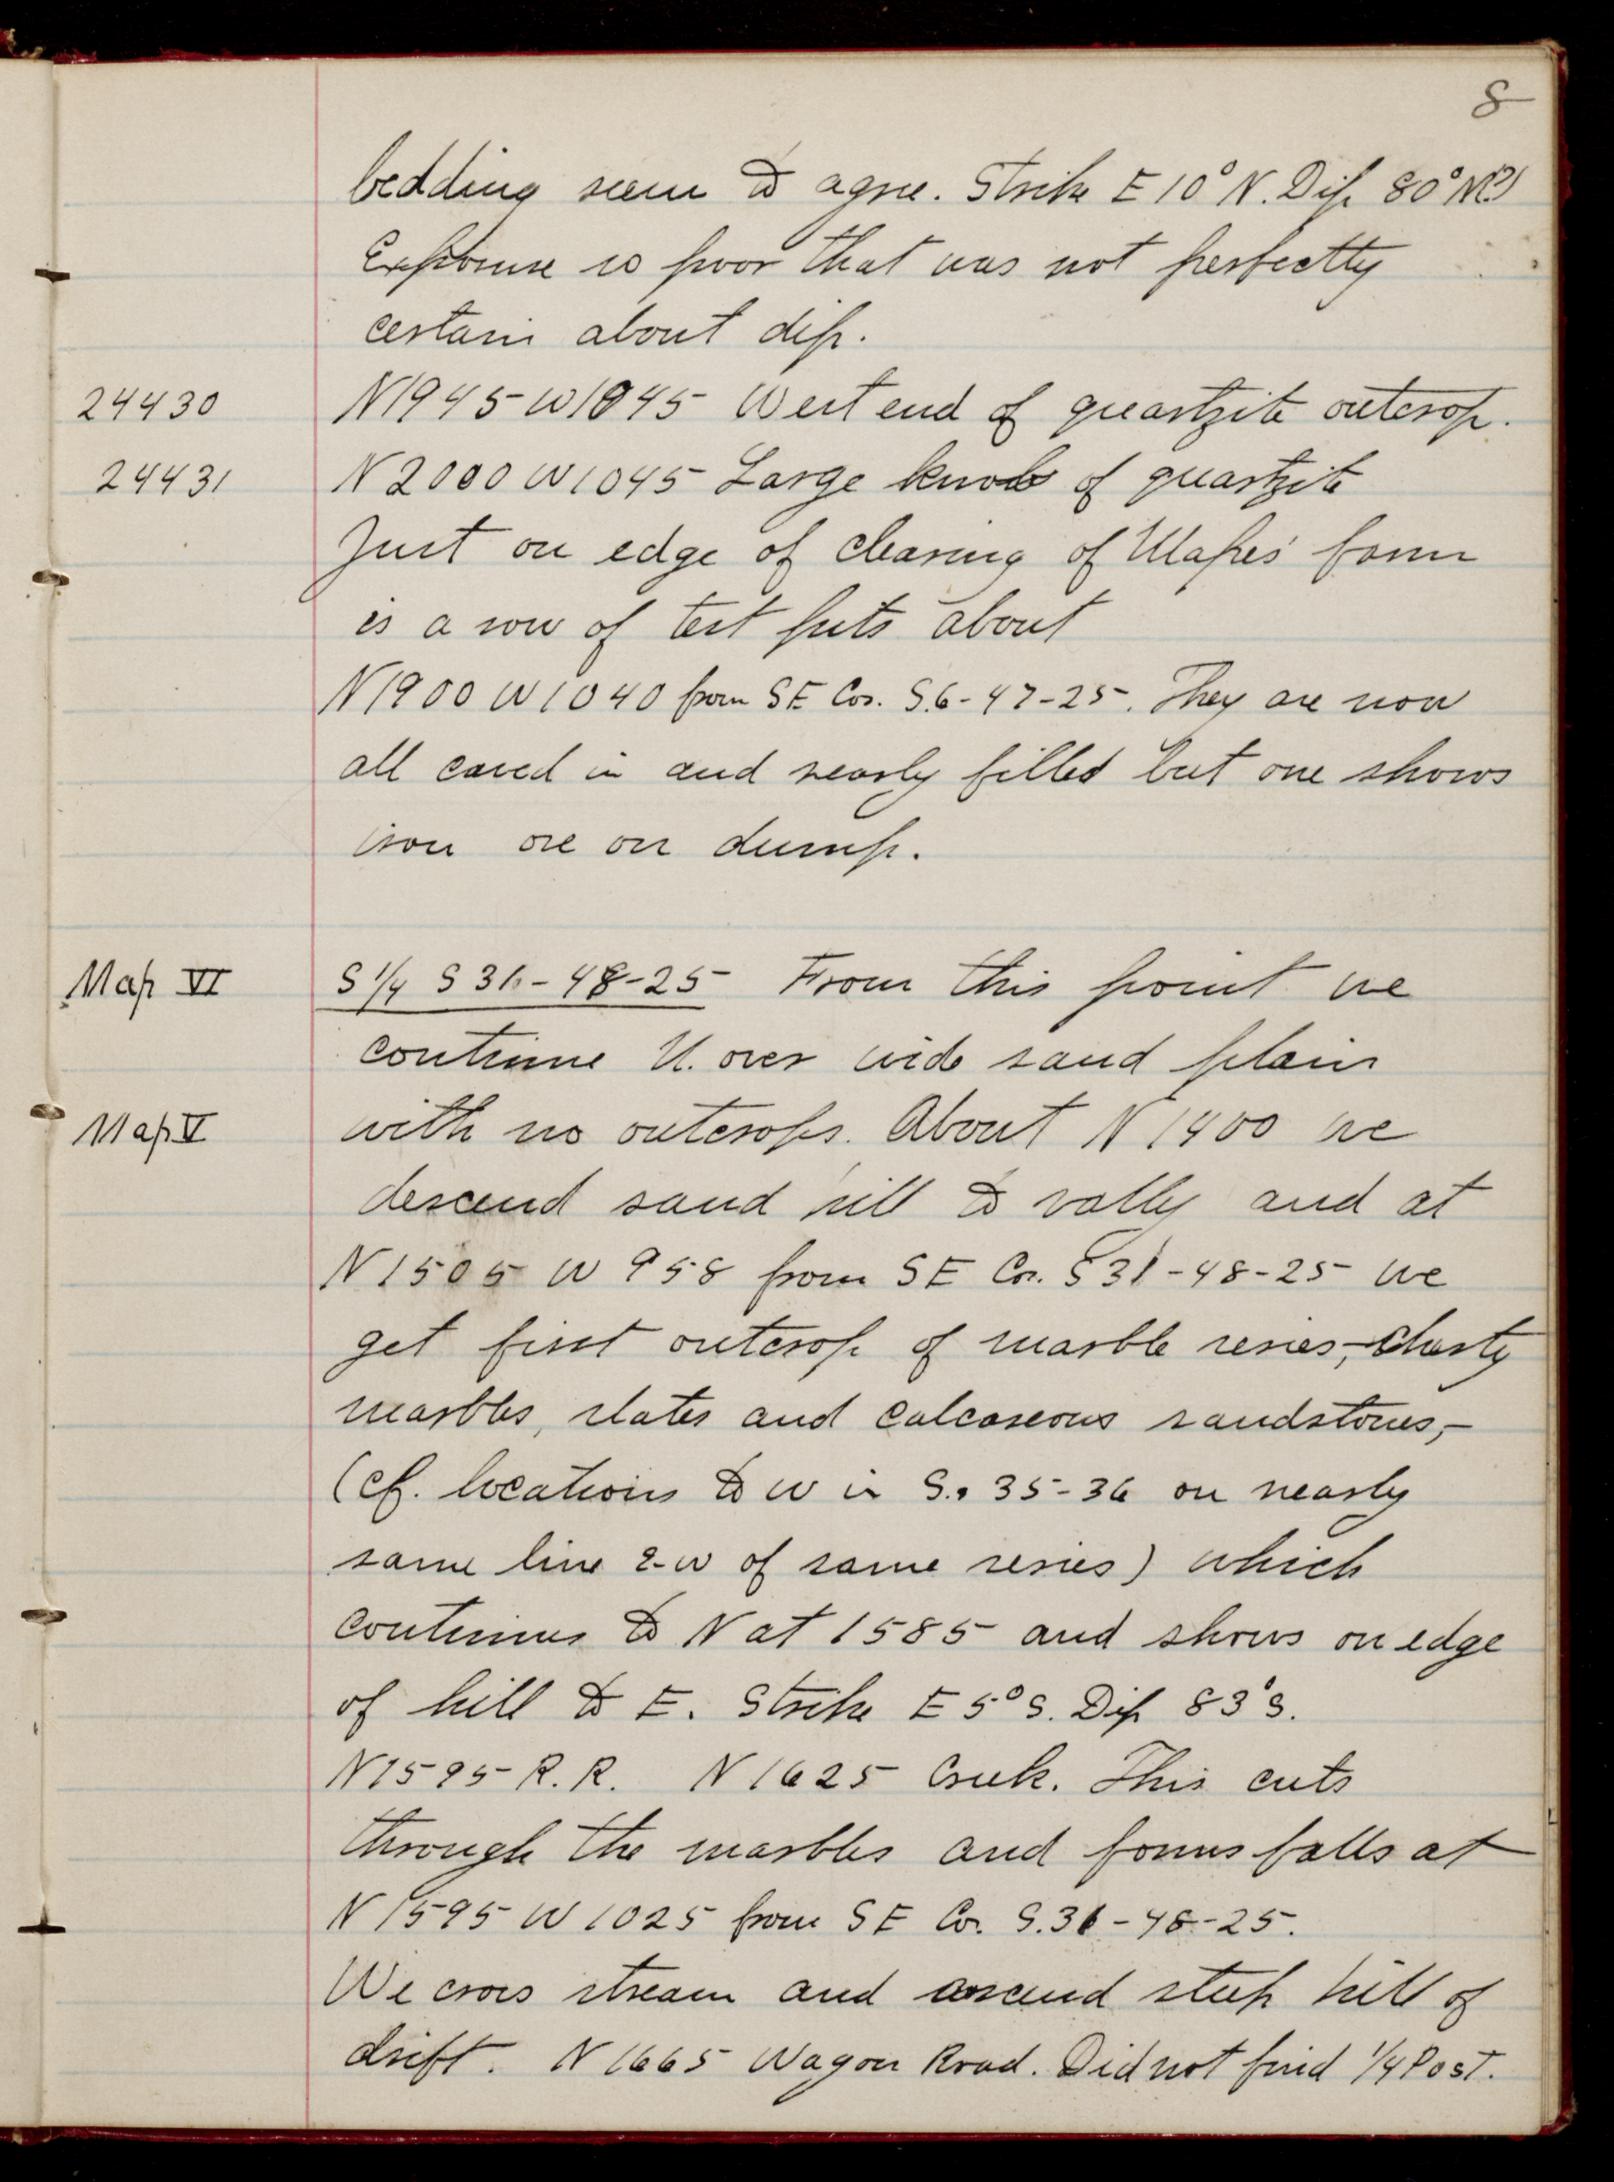 8
bedding seem to agree. Strike E 10° N. Dip 80° N(?)
Exposure so poor that was not perfectly
certain about dip.
24430 N1945 W1045 West end of quartzite outcrop.
24431 N2000 W1045 Large knob of quartzite
Just on edge of clearing of Mapes' farm
is a row of test pits about
N1900 W1040 from SE Cor. S.6-47-25. They are now
all caved in and nearly filled but one shows
iron ore on dump.
Map VI S 1/4 S 31-48-25 From this point we
continue N. over wide sand plain
Map V with no outcrops. About N 1400 we
descend sand hill to vally and at
N1505 W 958 from SE Cor. S 31-48-25 we
get first outcrop of marble series,-cherty
marbles, slates and calcareous sandstones,-
(cf. locations to W in S.s 35-36 on nearly
same line E-W of same series) which
continues to N at 1585 and shows on edge
of hill to E. Strike E 5° S. Dip 83° S.
N1595 R.R. N 1625 Creek. This cuts
through the marbles and forms falls at
N 1595 W 1025 from SE Cor. S.31-48-25.
We cross stream and ascend steep hill of
drift. N 1665 Wagon Road. Did not find 1/4 Post.